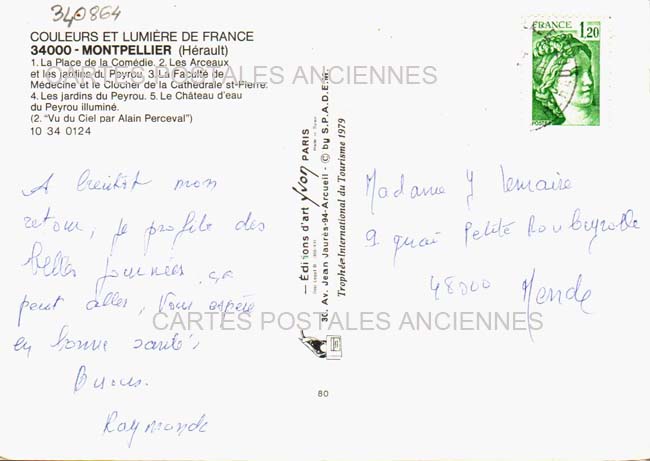 340864
COULEURS ET LUMIÈRE DE FRANCE
34000 - MONTPELLIER (Hérault)
1. La Place de la Comédie. 2. Les Arceaux
et les jardins du Peyrou. 3. La Faculté de
Médecine et le Clocher de la Cathédrale st-Pierre.
4. Les jardins du Peyrou. 5. Le Château d'eau
du Peyrou illuminé.
(2. "Vu du Ciel par Alain Perceval")
10 34 0124
CARTES POSTALES ANCIENNES
A bientôt mon
retour, je profite des
belles journées, ça
peut aller, Vous espère
en bonne santé,
Bises.
Raymonde
— Éditions d'art Yvon PARIS
30, Av. Jean Jaurès-94-Arcueil - © by S.P.A.D.E.M.
Trophée International du Tourisme 1979
80
FRANCE
1,20
POSTES
Madame J Lemaire
9 quai Petite Roubeyrolle
48000 Mende
CARTES POSTALES ANCIENNES